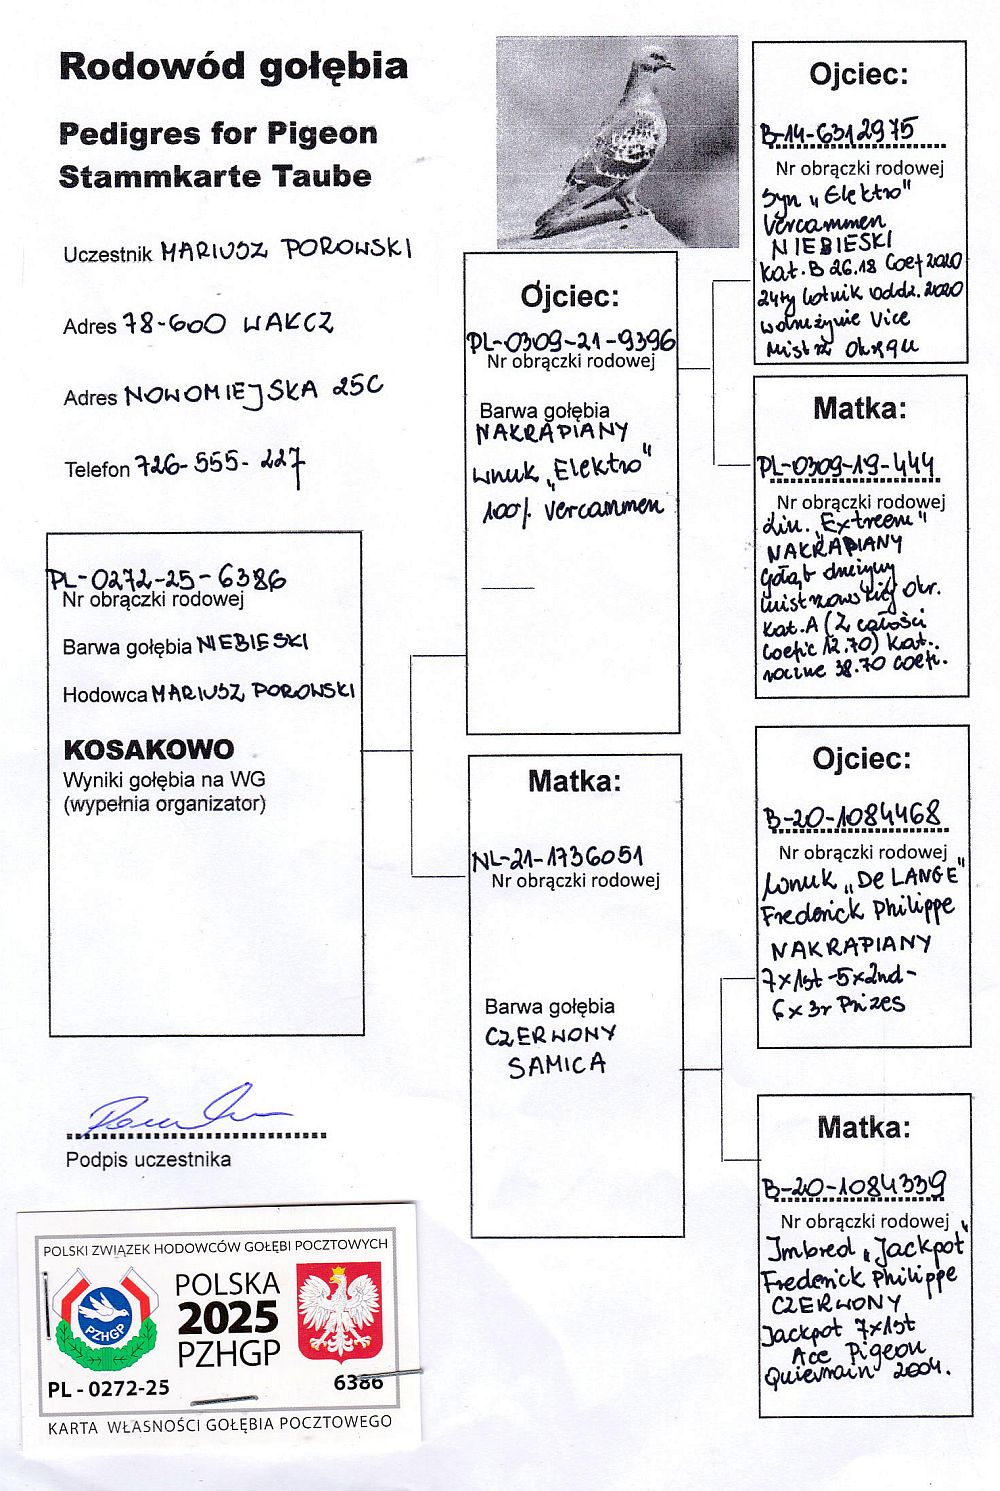 Rodowód gołębia
Pedigres for Pigeon
Stammkarte Taube
Uczestnik MARIUSZ POROWSKI
Adres 78-600 WAŁCZ
Adres NOWOMIEJSKA 25C
Telefon 726-555-227
PL-0272-25-6386
Nr obrączki rodowej
Barwa gołębia NIEBIESKI
Hodowca MARIUSZ POROWSKI
KOSAKOWO
Wyniki gołębia na WG
(wypełnia organizator)
Podpis uczestnika
POLSKI ZWIĄZEK HODOWCÓW GOŁĘBI POCZTOWYCH
PZHGP
POLSKA
2025
PZHGP
PL - 0272-25
6386
KARTA WŁASNOŚCI GOŁĘBIA POCZTOWEGO
Ojciec:
PL-0309-21-9396
Nr obrączki rodowej
Barwa gołębia
NAKRAPIANY
wnuk „Elektro"
100% Vercammen
Matka:
NL-21-1736051
Nr obrączki rodowej
Barwa gołębia
CZERWONY
SAMICA
Ojciec:
B-14-6312975
Nr obrączki rodowej
Syn „Elektro"
Vercammen
NIEBIESKI
Kat.B 26.18 Coef 2020
24ty lotnik oddz. 2020
Vice
Mistrz Okręgu
Matka:
PL-0309-19-444
Nr obrączki rodowej
Lin. „Extreem"
NAKRAPIANY
Gołąb drużyny
mistrzowskiej Okr.
Kat.A (Z całości
Coefic 12.70) Kat.
roczne 38.70 coefi.
Ojciec:
B-20-1084468
Nr obrączki rodowej
Wnuk „De LANGE"
Frederick Philippe
NAKRAPIANY
7x1st-5x2nd-
6x3r Prizes
Matka:
B-20-1084339
Nr obrączki rodowej
Imbred „Jackpot"
Frederick Philippe
CZERWONY
Jackpot 7x1st
Ace Pigeon
Quievrain 2004.